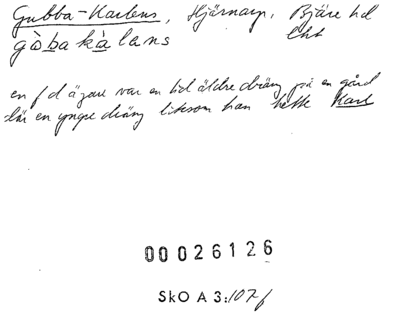 Gubba-Karlens, Hjärnarp, Bjäre hd
gòbakàlans Lht
en f d ägare var en tid äldre dräng på en gård
där en yngre dräng liksom han hette Karl
00026126
SkO A 3:107f